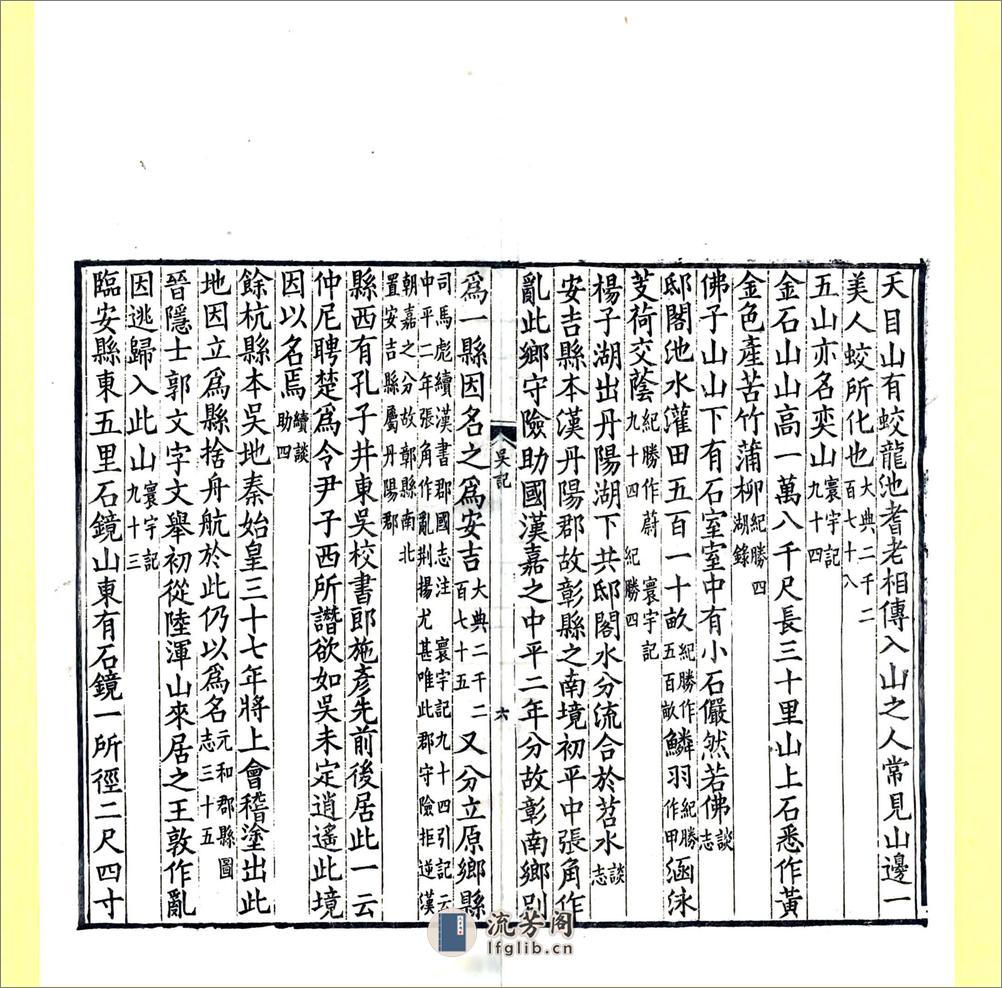 天目山有蛟龍池耆老相傳入山之人常見山邊一
美人蛟所化也大典二千二百七十八
五山亦名奕山寰宇記九十四
金石山山高一萬八千尺長三十里山上石悉作黃
金色產苦竹蒲柳紀勝四湖錄
佛子山山下有石室室中有小石儼然若佛談志
邸閣池水灌田五百一十畝紀勝作五百畝鱗羽紀勝作甲涵泳
芰荷交蔭紀勝作蔚寰宇記九十四紀勝四
楊子湖出丹陽湖下共邸閣水分流合於苕水談志
安吉縣本漢丹陽郡故彰縣之南境初平中張角作
亂此鄉守險助國漢嘉之中平二年分故彰南鄉別
吳記
六
為一縣因名之為安吉大典二千二百七十五又分立原鄉縣
司馬彪續漢書郡國志注寰宇記九十四引記云中平二年張角作亂荆揚尤甚唯此郡守險拒逆漢
朝嘉之分故鄣縣南北置安吉縣屬丹陽郡
縣西有孔子井東吳校書郎施彥先前後居此一云
仲尼聘楚為令尹子西所譖欲如吳未定逍遙此境
因以名焉續談助四
餘杭縣本吳地秦始皇三十七年將上會稽塗出此
地因立為縣捨舟航於此仍以為名元和郡縣圖志三十五
晉隱士郭文字文舉初從陸渾山來居之王敦作亂
因逃歸入此山寰宇記九十三
臨安縣東五里石鏡山東有石鏡一所徑二尺四寸
流芳閣
lfglib.cn